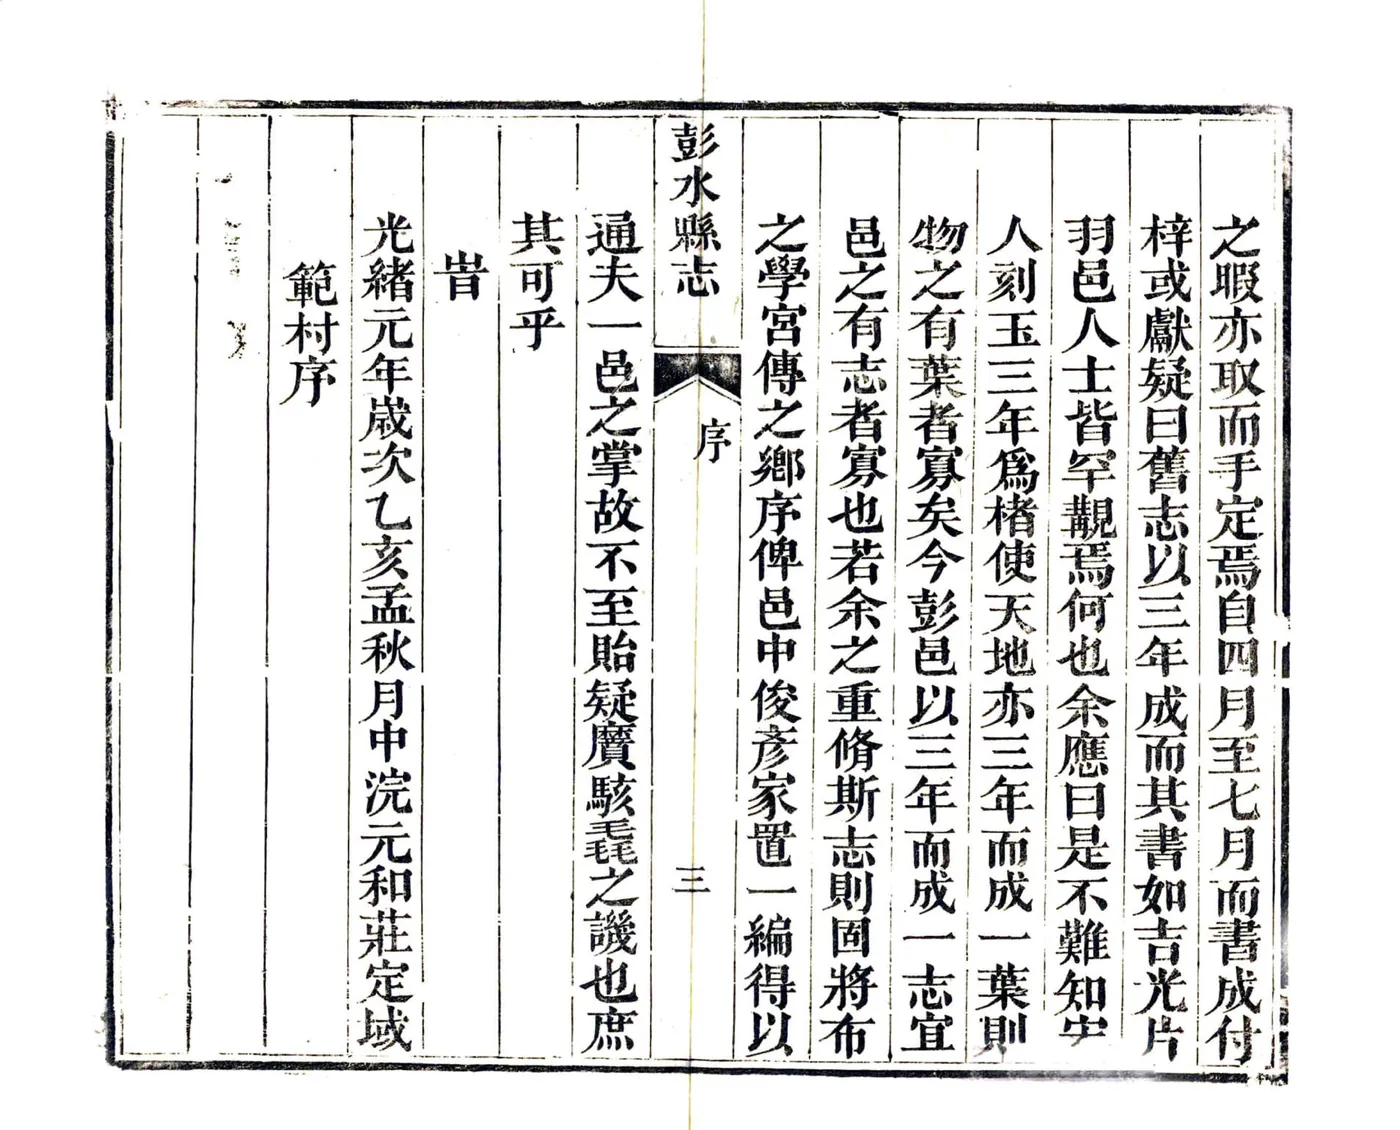 之暇亦取而手定焉自四月至七月而書成付
梓或獻疑曰舊志以三年成而其書如吉光片
羽邑人士皆罕覯焉何也余應曰是不難知宋
人刻玉三年爲楮使天地亦三年而成一葉則
物之有葉者寡矣今彭邑以三年而成一志宜
邑之有志者寡也若余之重脩斯志則固將布
之學宮傳之鄉序俾邑中俊彥家置一編得以
彭水縣志
序
三
通夫一邑之掌故不至貽疑黂駭毳之譏也庶
其可乎
旹
光緒元年歲次乙亥孟秋月中浣元和莊定域
範村序